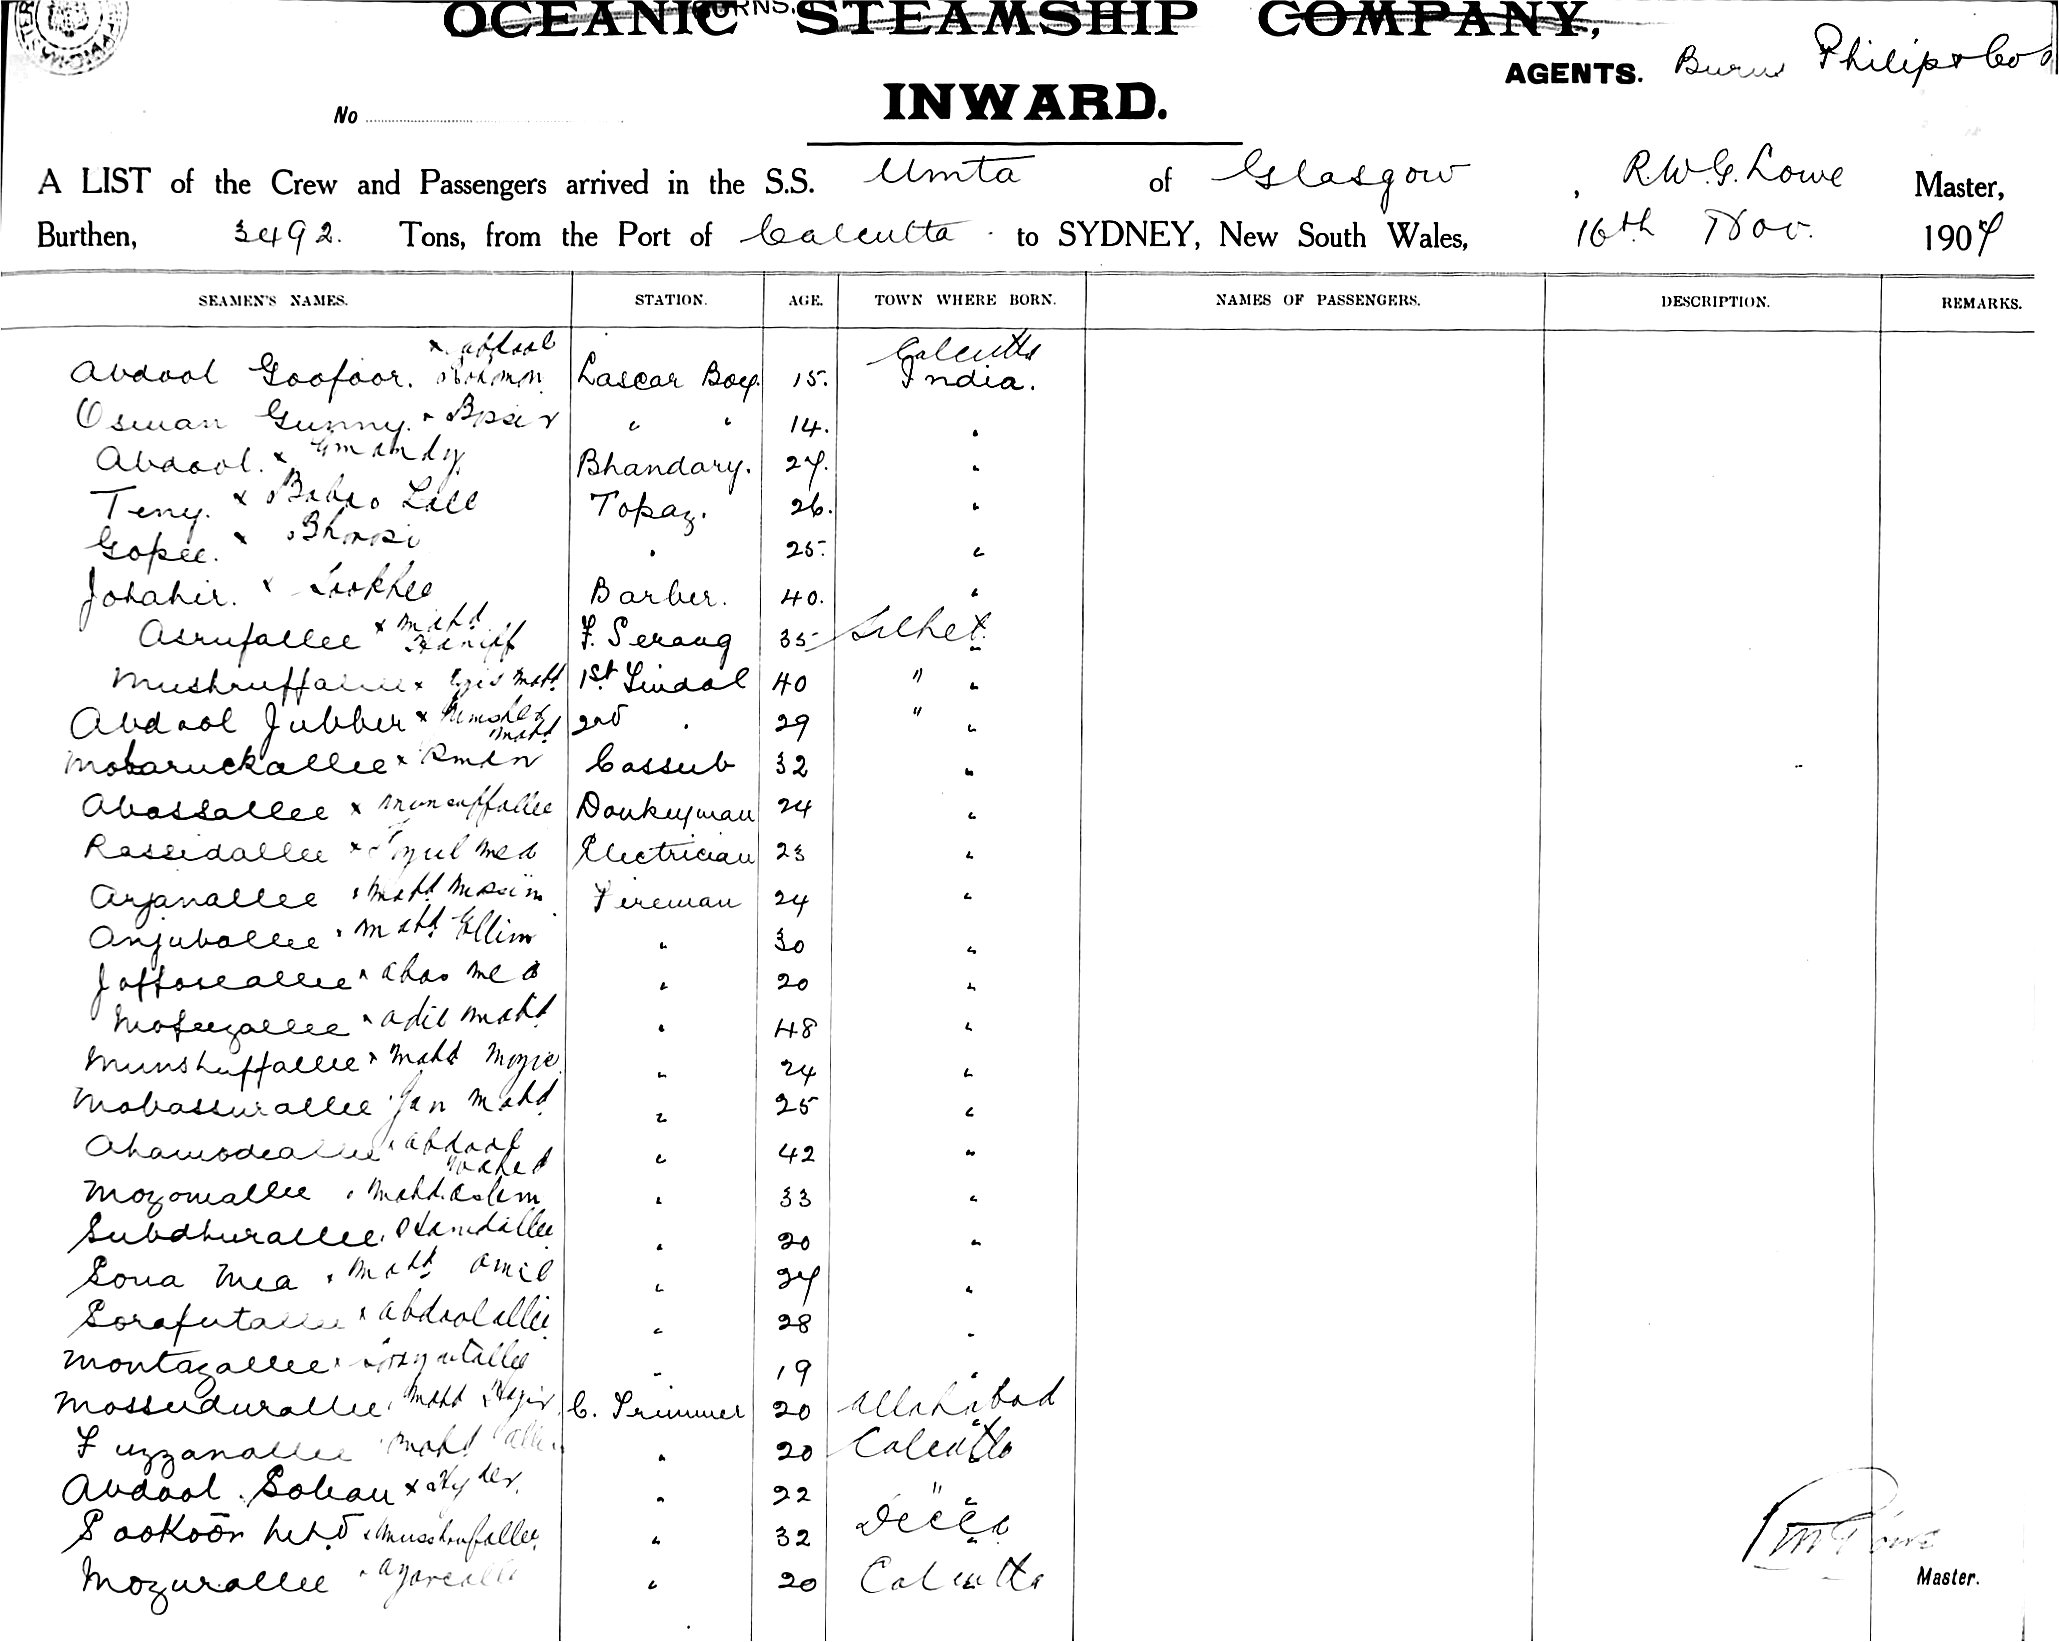 OCEANIC STEAMSHIP COMPANY,
BURNS,
AGENTS. Burns Philip & Co
INWARD.
No
A LIST of the Crew and Passengers arrived in the S.S. Umta of Glasgow, R.W.G. Lowe Master,
Burthen, 3492. Tons, from the Port of Calcutta to SYDNEY, New South Wales, 16th Nov. 1907
SEAMEN'S NAMES. STATION. AGE. TOWN WHERE BORN. NAMES OF PASSENGERS. DESCRIPTION. REMARKS.
Abdool Goofoor. x Abdool Lascar Boy. 15. Calcutta India.
Osman Gunny. x " " 14. "
Abdool. x Bhandary. 27. "
Teny. x Babao Lall Topaz. 26. "
Gopee. x " 25. "
Johahir. x Sookhee Barber. 40. "
Asrufallee x Mahd Haniff F. Serang 35 Silhet "
Mushruffallee x Mahd 1st Tindal 40 " "
Abdool Jubber x Mahd 2nd " 29 " "
Mobaruckallee x Cassub 32 "
Abassallee x Munsuffallee Donkeyman 24 "
Rassidallee x Electrician 23 "
Arjanallee x Mahd Fireman 24 "
Anjuballee x Mahd Ellim " 30 "
Joffaseallee x " 20 "
Mofeezallee x Adil Mahd " 48 "
Munshuffallee x Mahd " 24 "
Mobassurallee x Jan Mahd " 25 "
Ahamodeallee x Abdool Wahed " 42 "
Mozomallee x Mahd Aslem " 33 "
Subdhurallee " 20 "
Sona Mea x Mahd Amil " 27 "
Sorafutallee x Abdoolallie " 28 "
Montazallee x " 19 "
Mossudurallee x Mahd C. Trimmer 20 Allahabad
Fuzzanallee x Mahd " 20 Calcutta
Abdool Soban x Hyder. " 22 " "
Sookoor Mhd x Musshruffallee " 32 Decca
Mozurallee x " 20 Calcutta
Master.